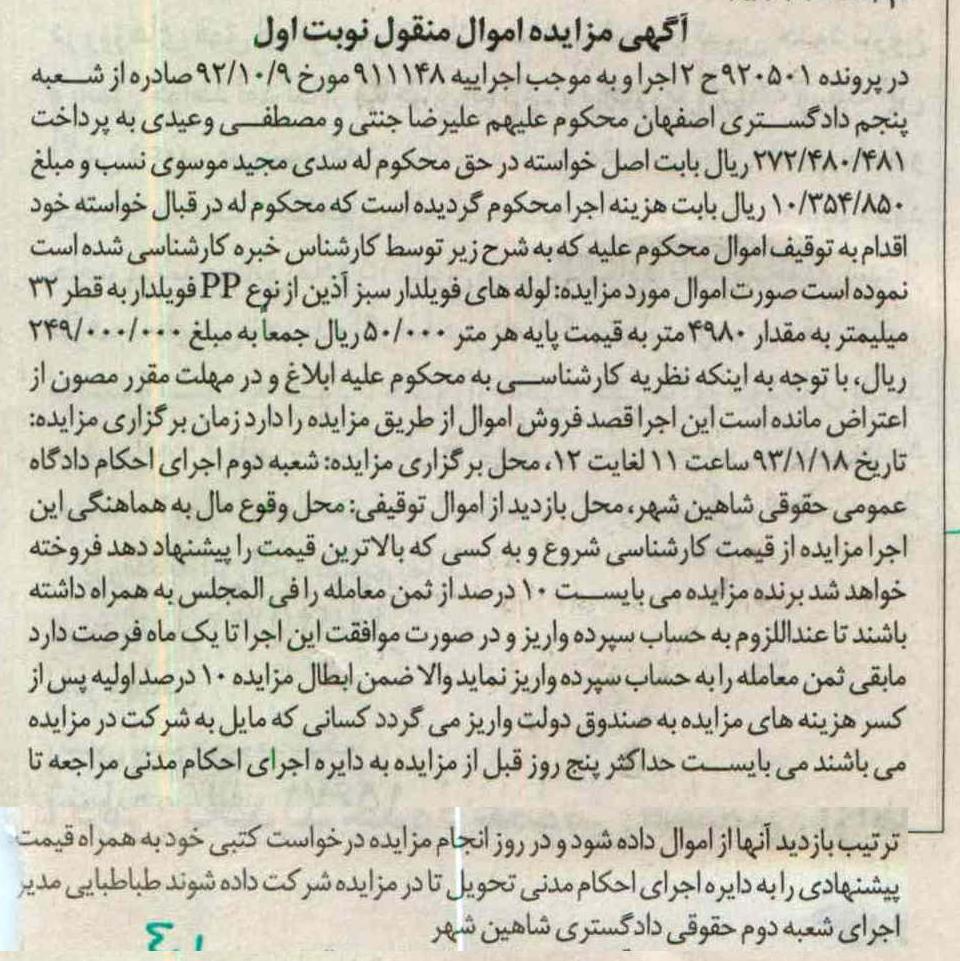 آگهی مزایده اموال منقول نوبت اول
در پرونده ۹۲۰۵۰۱ ح ۲ اجرا و به موجب اجراییه ۹۱۱۱۴۸ مورخ ۹۲/۱۰/۹ صادره از شعبه
پنجم دادگستری اصفهان محکوم علیهم علیرضا جنتی و مصطفی وعیدی به پرداخت
۲۷۲/۴۸۰/۴۸۱ ریال بابت اصل خواسته در حق محکوم له سدی مجید موسوی نسب و مبلغ
۱۰/۳۵۴/۸۵۰ ریال بابت هزینه اجرا محکوم گردیده است که محکوم له در قبال خواسته خود
اقدام به توقیف اموال محکوم علیه که به شرح زیر توسط کارشناس خبره کارشناسی شده است
نموده است صورت اموال مورد مزایده: لوله های فویلدار سبز آذین از نوع PP فویلدار به قطر ۳۲
میلیمتر به مقدار ۴۹۸۰ متر به قیمت پایه هر متر ۵۰/۰۰۰ ریال جمعاً به مبلغ ۲۴۹/۰۰۰/۰۰۰
ریال، با توجه به اینکه نظریه کارشناسی به محکوم علیه ابلاغ و در مهلت مقرر مصون از
اعتراض مانده است این اجرا قصد فروش اموال از طریق مزایده را دارد زمان برگزاری مزایده:
تاریخ ۹۳/۱/۱۸ ساعت ۱۱ لغایت ۱۲، محل برگزاری مزایده: شعبه دوم اجرای احکام دادگاه
عمومی حقوقی شاهین شهر، محل بازدید از اموال توقیفی: محل وقوع مال به هماهنگی این
اجرا مزایده از قیمت کارشناسی شروع و به کسی که بالاترین قیمت را پیشنهاد دهد فروخته
خواهد شد برنده مزایده می بایست ۱۰ درصد از ثمن معامله را فی المجلس به همراه داشته
باشند تا عنداللزوم به حساب سپرده واریز و در صورت موافقت این اجرا تا یک ماه فرصت دارد
مابقی ثمن معامله را به حساب سپرده واریز نماید والا ضمن ابطال مزایده ۱۰ درصد اولیه پس از
کسر هزینه های مزایده به صندوق دولت واریز می گردد کسانی که مایل به شرکت در مزایده
می باشند می بایست حداکثر پنج روز قبل از مزایده به دایره اجرای احکام مدنی مراجعه تا
ترتیب بازدید آنها از اموال داده شود و در روز انجام مزایده درخواست کتبی خود به همراه قیمت
پیشنهادی را به دایره اجرای احکام مدنی تحویل تا در مزایده شرکت داده شوند طباطبایی مدیر
اجرای شعبه دوم حقوقی دادگستری شاهین شهر